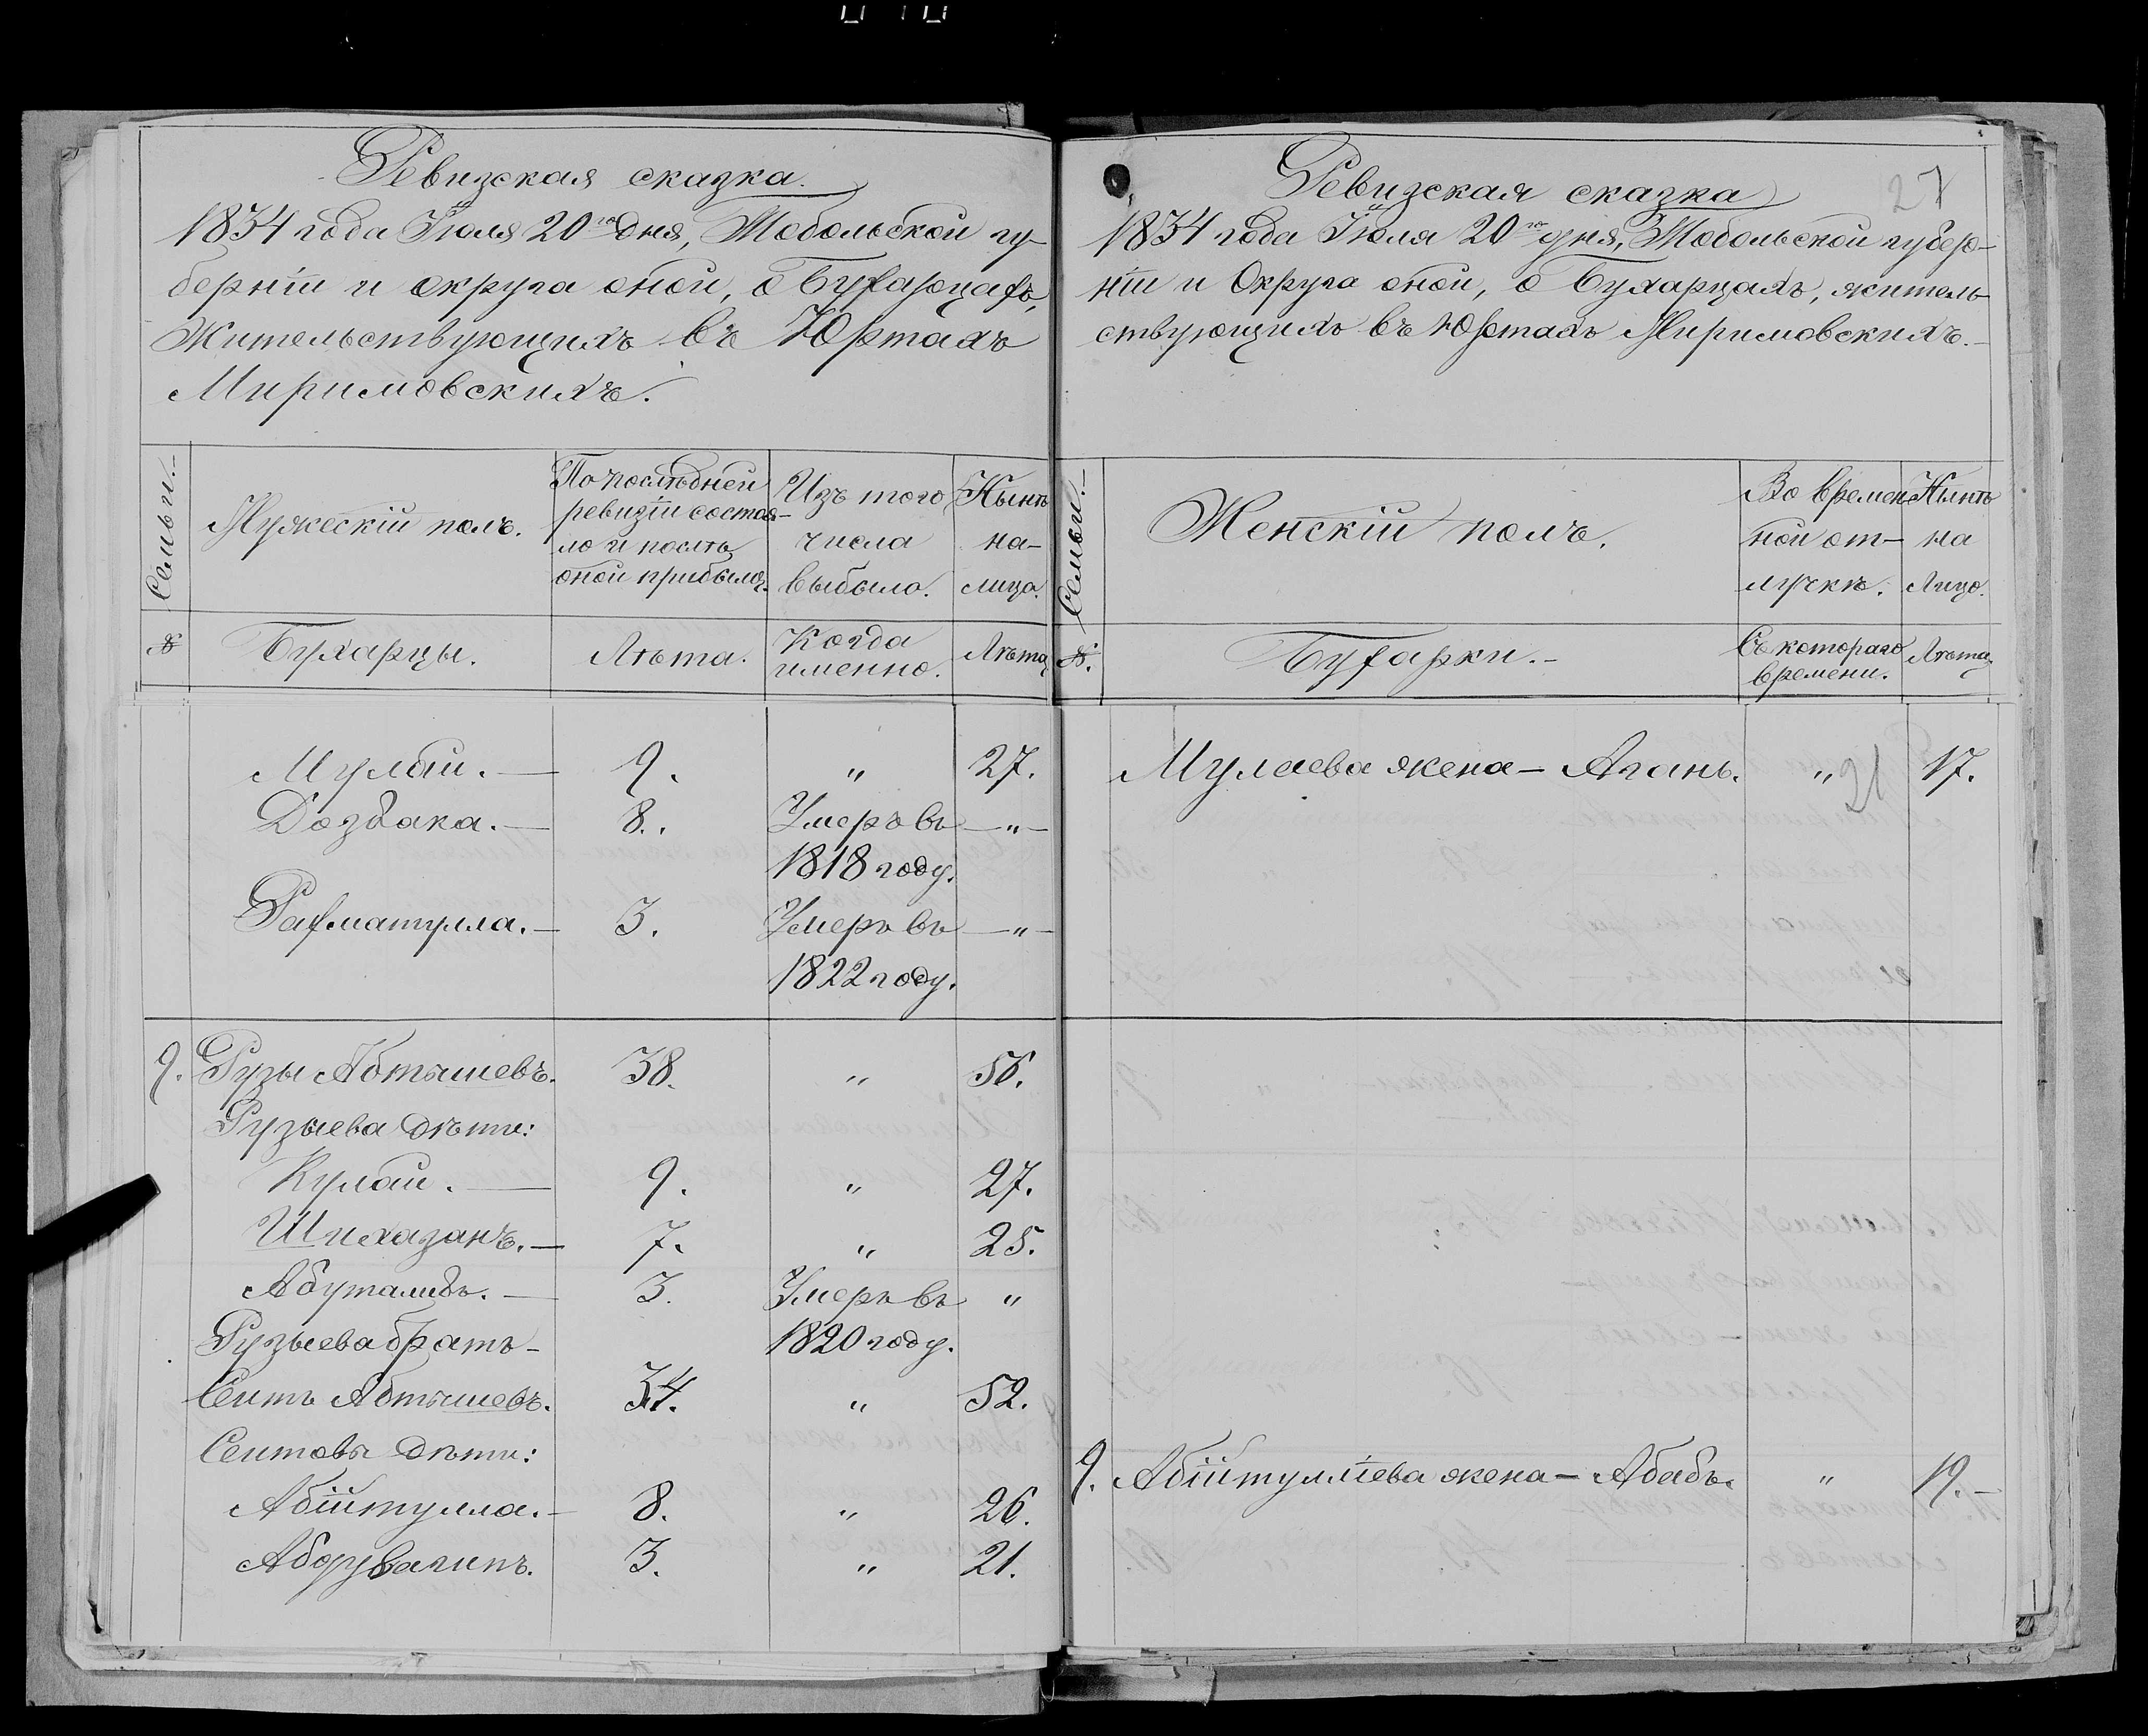 Ревизская сказка.
1834 года Іюля 20го дня, Тобольской гу-
берніи и округа оной, о Бухарцахъ,
Жительствующихъ въ Юртахъ
Миримовскихъ.
Семьи.
Мужескій полъ.
По послѣдней
ревизіи состоя-
ло и послѣ
оной прибыло.
Изъ того
числа
выбыло.
Нынѣ
на-
лицо.
№
Бухарцы.
Лѣта.
Когда
именно.
Лѣта
Мулай. — 9. " 27.
Дозбака. — 8. Умеръ въ — " —
1818 году.
Рахматулла. — 3. Умеръ въ — " —
1822 году.
9. Рузы Абтышевъ. 38. " 56.
Рузыева дѣти:
Кулай. — 9. " 27.
Шихазанъ. — 7. " 25.
Абуталибъ. — 3. Умеръ въ "
Рузыева братъ - 1820 году.
Сеитъ Абтышевъ. 34. " 52.
Сеитовы дѣти:
Абіитулла. - 8. " 26.
Абдувагипъ. 3. " 21.
27
Ревизская сказка
1834 года Іюля 20го дня, Тобольской губер-
ніи и Округа оной, о Бухарцахъ, житель-
ствующихъ въ Юртахъ Миримовскихъ.
Семьи.
Женскій полъ.
Во времен
ной от-
лучкѣ.
Нынѣ
на
Лицо.
№.
Бухарки.
Съ котораго
времени.
Лѣта.
Мулаева жена — Агань. " 17.
21
9. Абіитулліева жена — Абабъ. " 19.